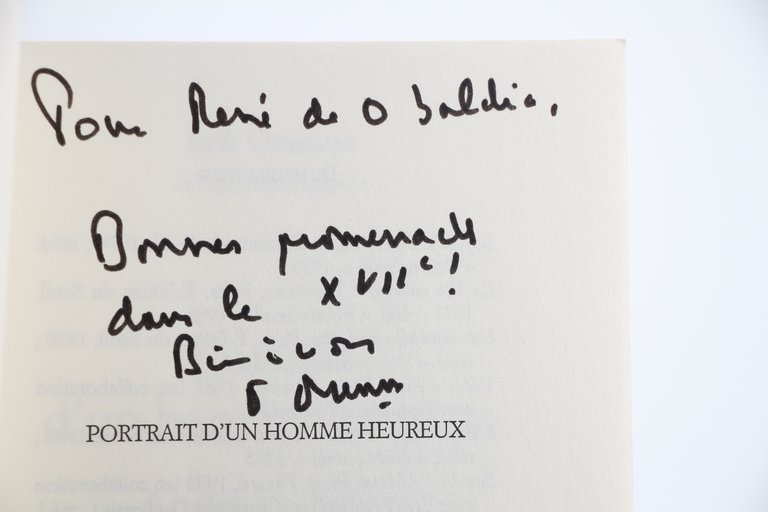 Pour René de Obaldia,
Bonnes promenades
dans le XVIIe!
Bien à vous
PORTRAIT D'UN HOMME HEUREUX